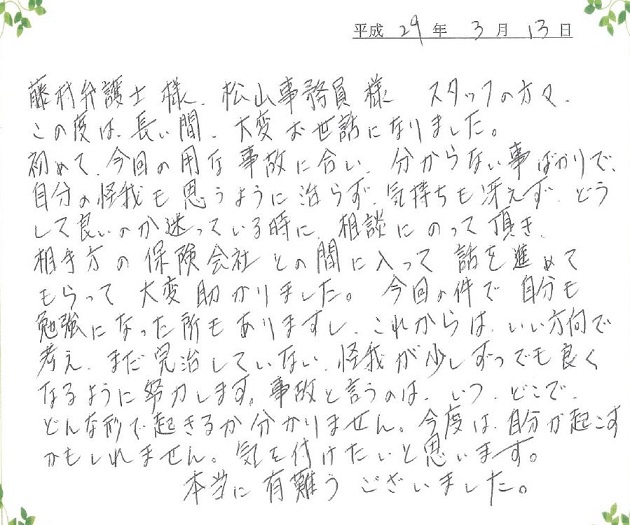 平成 29 年 3 月 13 日
藤村弁護士 様、松山事務員 様 スタッフの方々、
この度は、長い間、大変お世話になりました。
初めて、今回の用な 事故に合い、分からない事ばかりで、
自分の怪我も 思うように 治らず、気持ちも冴えず、どう
して良いのか迷っている時に、相談にのって頂き、
相手方の保険会社との間に入って 話を進めて
もらって 大変助かりました。今回の件で 自分も
勉強になった所もありますし、これからは、いい方向で
考え、まだ完治していない、怪我が少しずつでも良く
なるように努力します。事故と言うのは、いつ、どこで、
どんな形で起きるか分かりません。今度は、自分が起こす
かもしれません。気を付けたいと思います。
本当に 有難う ございました。